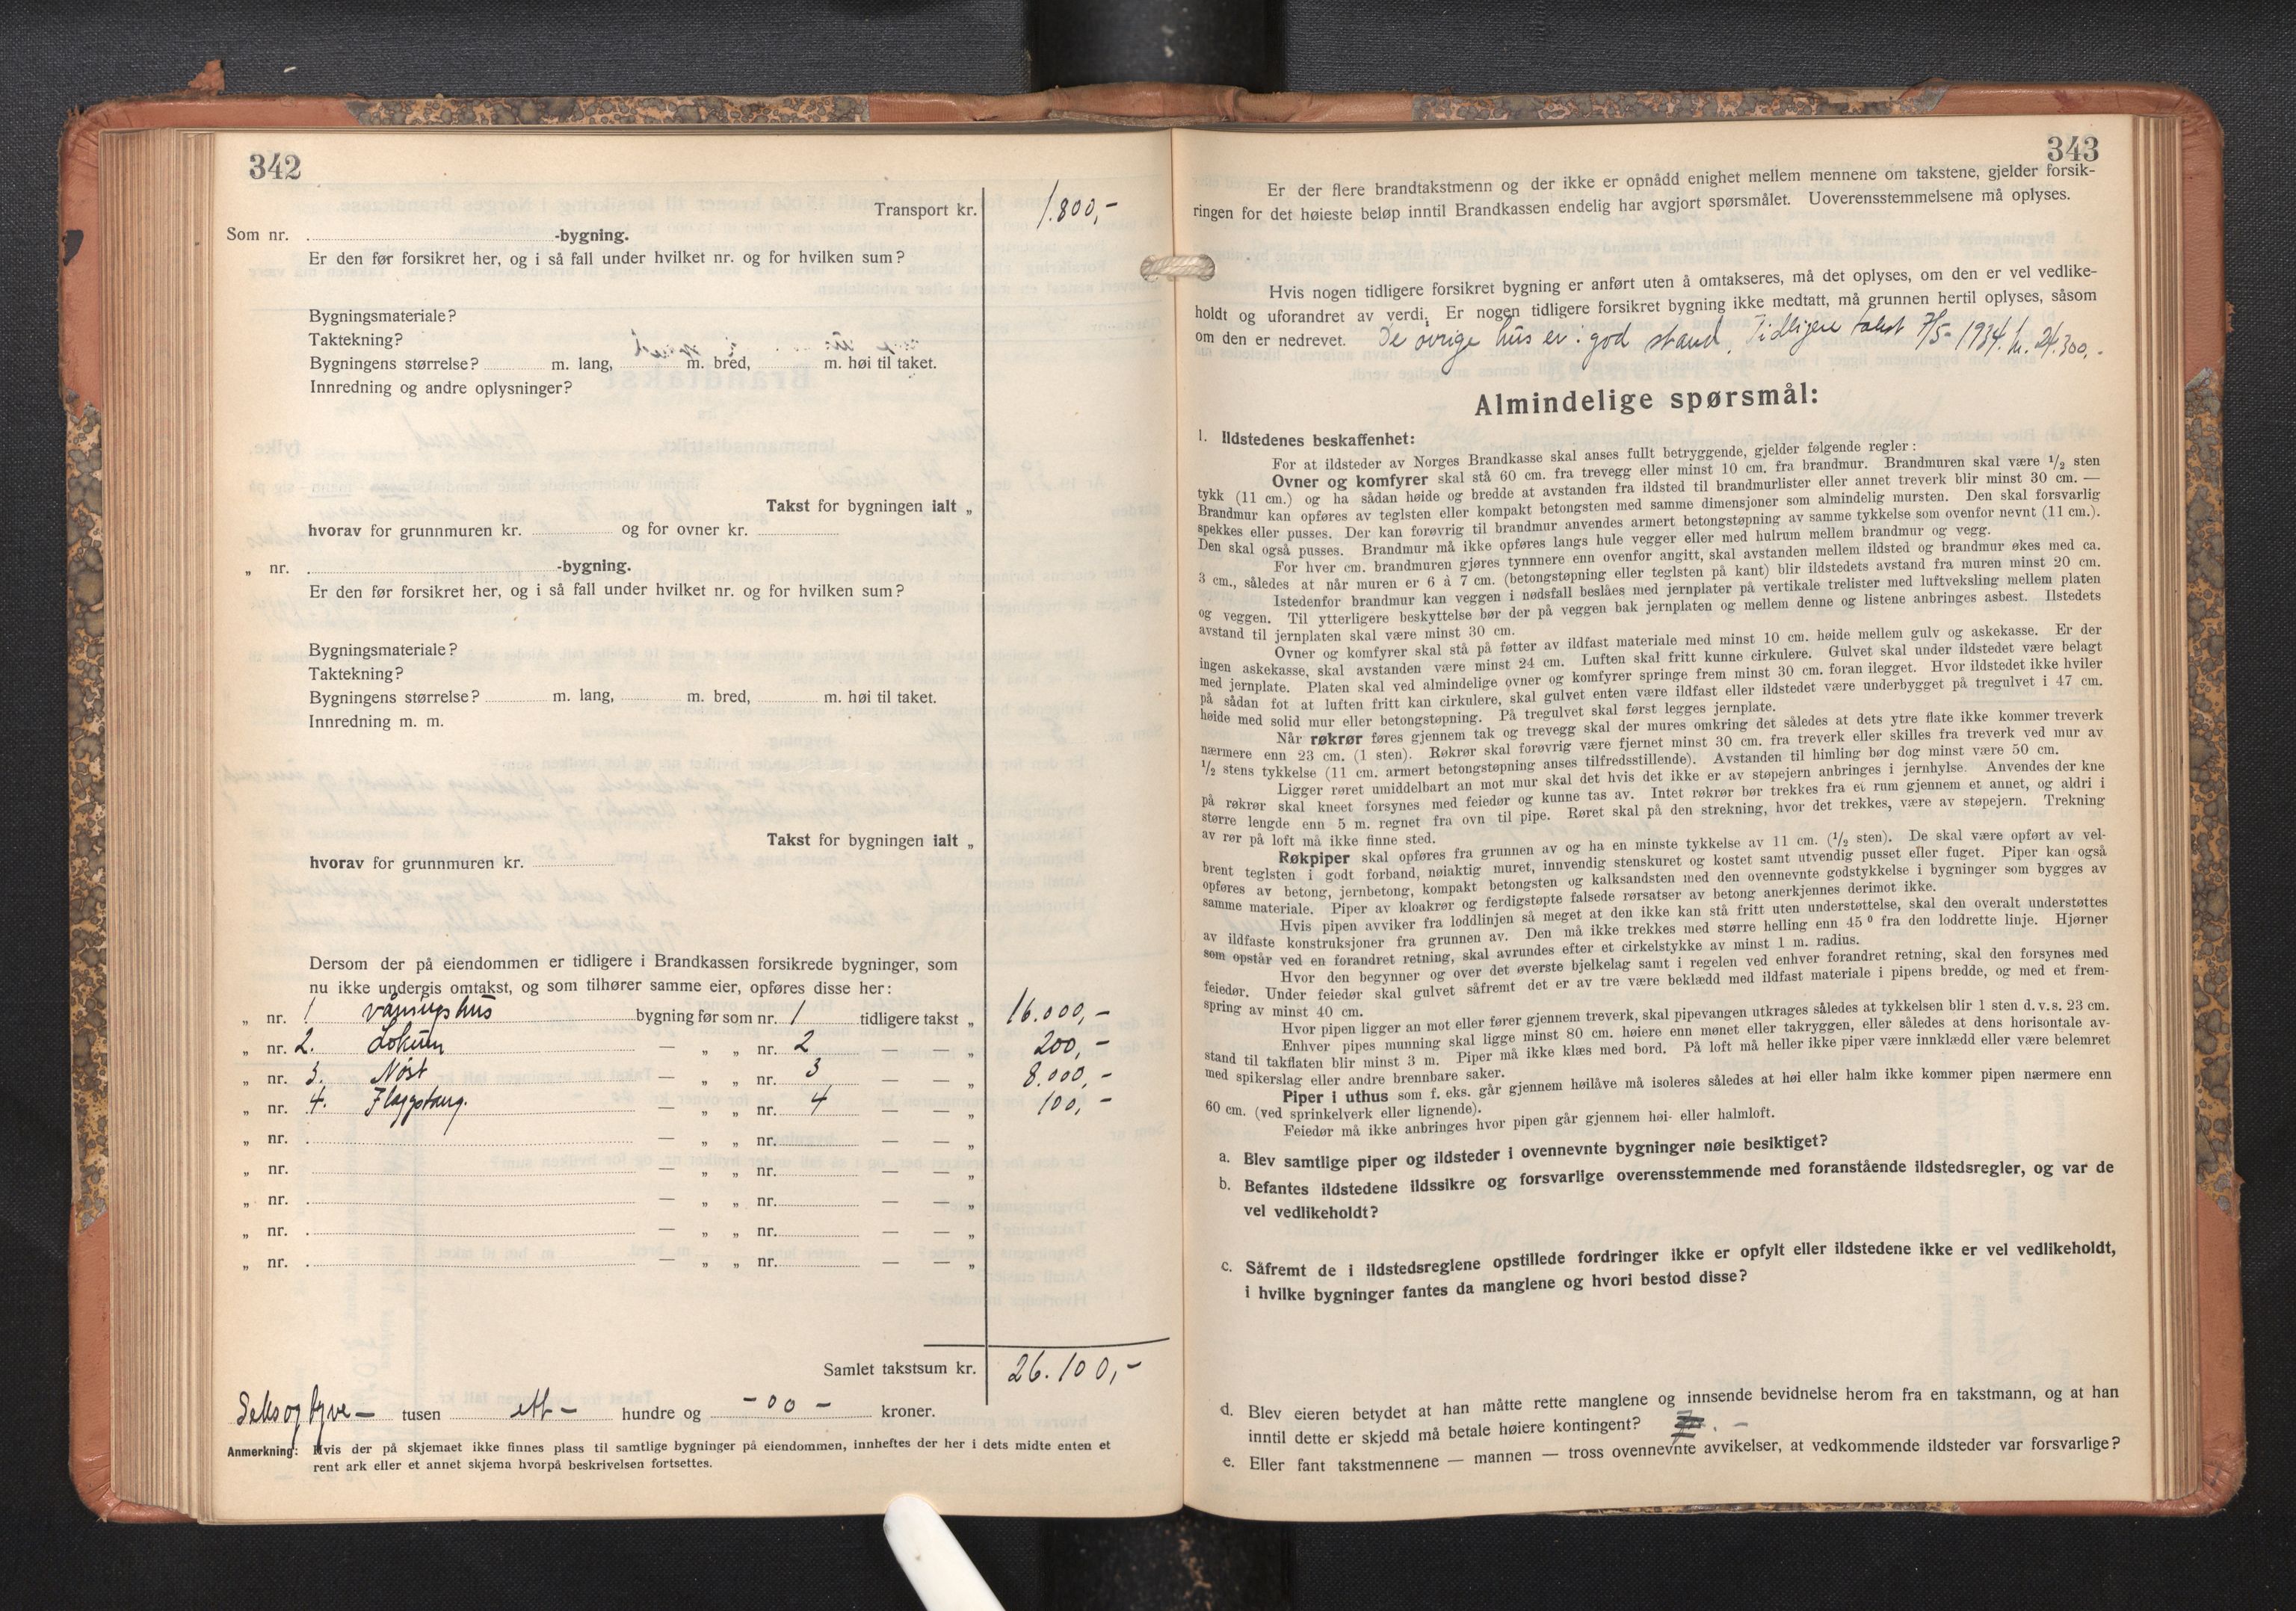 342
Transport kr. 1.800,-
Som nr. -bygning.
Er den før forsikret her, og i så fall under hvilket nr. og for hvilken sum?
Bygningsmateriale?
Taktekning?
Bygningens størrelse? m. lang, m. bred, m. høi til taket.
Innredning og andre oplysninger?
Takst for bygningen ialt „
hvorav for grunnmuren kr. og for ovner kr.
„ nr. -bygning.
Er den før forsikret her, og i så fall under hvilket nr. og for hvilken sum?
Bygningsmateriale?
Taktekning?
Bygningens størrelse? m. lang, m. bred, m. høi til taket.
Innredning m. m.
Takst for bygningen ialt „
hvorav for grunnmuren kr.
Dersom der på eiendommen er tidligere i Brandkassen forsikrede bygninger, som
nu ikke undergis omtakst, og som tilhører samme eier, opføres disse her:
„ nr. 1 våningshus bygning før som nr. 1 tidligere takst „ 16.000,-
„ nr. 2. Lokum — „ „ nr. 2 — — „ 200,-
„ nr. 3. Nøst — „ „ nr. 3 — — „ 8.000,-
„ nr. 4. Flaggstang. — „ „ nr. 4 — — „ 100,-
„ nr. — „ „ nr. — — „
„ nr. — „ „ nr. — — „
„ nr. — „ „ nr. — — „
„ nr. — „ „ nr. — — „
„ nr. — „ „ nr. — — „
Samlet takstsum kr. 26.100,-
Seksogtyve — tusen ett - hundre og - 00 - kroner.
Anmerkning: Hvis der på skjemaet ikke finnes plass til samtlige bygninger på eiendommen, innheftes der her i dets midte enten et
rent ark eller et annet skjema hvorpå beskrivelsen fortsettes.
343
Er der flere brandtakstmenn og der ikke er opnådd enighet mellem mennene om takstene, gjelder forsik-
ringen for det høieste beløp inntil Brandkassen endelig har avgjort spørsmålet. Uoverensstemmelsene må oplyses.
Hvis nogen tidligere forsikret bygning er anført uten å omtakseres, må det oplyses, om den er vel vedlike-
holdt og uforandret av verdi. Er nogen tidligere forsikret bygning ikke medtatt, må grunnen hertil oplyses, såsom
om den er nedrevet. De øvrige hus er i god stand. Tidligere takst 7/5-1934. kr. 24.300,-
Almindelige spørsmål:
1. Ildstedenes beskaffenhet:
For at ildsteder av Norges Brandkasse skal anses fullt betryggende, gjelder følgende regler:
Ovner og komfyrer skal stå 60 cm. fra trevegg eller minst 10 cm. fra brandmur. Brandmuren skal være 1/2 sten
tykk (11 cm.) og ha sådan høide og bredde at avstanden fra ildsted til brandmurlister eller annet treverk blir minst 30 cm. —
Brandmur kan opføres av teglsten eller kompakt betongsten med samme dimensjoner som almindelig mursten. Den skal forsvarlig
spekkes eller pusses. Der kan forøvrig til brandmur anvendes armert betongstøpning av samme tykkelse som ovenfor nevnt (11 cm.).
Den skal også pusses. Brandmur må ikke opføres langs hule vegger eller med hulrum mellem brandmur og vegg.
For hver cm. brandmuren gjøres tynnere enn ovenfor angitt, skal avstanden mellem ildsted og brandmur økes med ca.
3 cm., således at når muren er 6 à 7 cm. (betongstøpning eller teglsten på kant) blir ildstedets avstand fra muren minst 20 cm.
Istedenfor brandmur kan veggen i nødsfall beslåes med jernplater på vertikale trelister med luftveksling mellem platen
og veggen. Til ytterligere beskyttelse bør der på veggen bak jernplaten og mellem denne og listene anbringes asbest. Ilstedets
avstand til jernplaten skal være minst 30 cm.
Ovner og komfyrer skal stå på føtter av ildfast materiale med minst 10 cm. høide mellem gulv og askekasse. Er der
ingen askekasse, skal avstanden være minst 24 cm. Luften skal fritt kunne cirkulere. Gulvet skal under ildstedet være belagt
med jernplate. Platen skal ved almindelige ovner og komfyrer springe frem minst 30 cm. foran ilegget. Hvor ildstedet ikke hviler
på sådan fot at luften fritt kan cirkulere, skal gulvet enten være ildfast eller ildstedet være underbygget på tregulvet i 47 cm.
høide med solid mur eller betongstøpning. På tregulvet skal først legges jernplate.
Når røkrør føres gjennem tak og trevegg skal der mures omkring det således at dets ytre flate ikke kommer treverk
nærmere enn 23 cm. (1 sten). Røkrør skal forøvrig være fjernet minst 30 cm. fra treverk eller skilles fra treverk ved mur av
1/2 stens tykkelse (11 cm. armert betongstøpning anses tilfredsstillende). Avstanden til himling bør dog minst være 50 cm.
Ligger røret umiddelbart an mot mur skal det hvis det ikke er av støpejern anbringes i jernhylse. Anvendes der kne
på røkrør skal kneet forsynes med feiedør og kunne tas av. Intet røkrør bør trekkes fra et rum gjennem et annet, og aldri i
større lengde enn 5 m. regnet fra ovn til pipe. Røret skal på den strekning, hvor det trekkes, være av støpejern. Trekning
av rør på loft må ikke finne sted.
Røkpiper skal opføres fra grunnen av og ha en minste tykkelse av 11 cm. (1/2 sten). De skal være opført av vel-
brent teglsten i godt forband, nøiaktig muret, innvendig stenskuret og kostet samt utvendig pusset eller fuget. Piper kan også
opføres av betong, jernbetong, kompakt betongsten og kalksandsten med den ovennevnte godstykkelse i bygninger som bygges av
samme materiale. Piper av kloakrør og ferdigstøpte falsede rørsatser av betong anerkjennes derimot ikke.
Hvis pipen avviker fra loddlinjen så meget at den ikke kan stå fritt uten understøttelse, skal den overalt understøttes
av ildfaste konstruksjoner fra grunnen av. Den må ikke trekkes med større helling enn 45 ⁰ fra den loddrette linje. Hjørner
som opstår ved en forandret retning, skal avrundes efter et cirkelstykke av minst 1 m. radius.
Hvor den begynner og over det øverste bjelkelag samt i regelen ved enhver forandret retning, skal den forsynes med
feiedør. Under feiedør skal gulvet såfremt det er av tre være beklædd med ildfast materiale i pipens bredde, og med et frem-
spring av minst 40 cm.
Hvor pipen ligger an mot eller fører gjennem treverk, skal pipevangen utkrages således at tykkelsen blir 1 sten d. v. s. 23 cm.
Enhver pipes munning skal ligge minst 80 cm. høiere enn mønet eller takryggen, eller således at dens horisontale av-
stand til takflaten blir minst 3 m. Piper må ikke klæs med bord. På loft må heller ikke piper være innklædd eller være belemret
med spikerslag eller andre brennbare saker.
Piper i uthus som f. eks. går gjennem høilåve må isoleres således at høi eller halm ikke kommer pipen nærmere enn
60 cm. (ved sprinkelverk eller lignende).
Feiedør må ikke anbringes hvor pipen går gjennem høi- eller halmloft.
a. Blev samtlige piper og ildsteder i ovennevnte bygninger nøie besiktiget?
b. Befantes ildstedene ildssikre og forsvarlige overensstemmende med foranstående ildstedsregler, og var de
vel vedlikeholdt?
c. Såfremt de i ildstedsreglene opstillede fordringer ikke er opfylt eller ildstedene ikke er vel vedlikeholdt,
i hvilke bygninger fantes da manglene og hvori bestod disse?
d. Blev eieren betydet at han måtte rette manglene og innsende bevidnelse herom fra en takstmann, og at han
inntil dette er skjedd må betale høiere kontingent?
e. Eller fant takstmennene — mannen — tross ovennevnte avvikelser, at vedkommende ildsteder var forsvarlige?